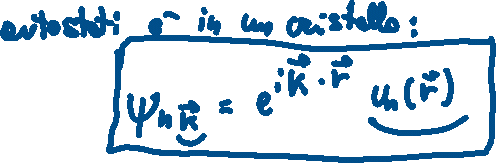 autostati e⁻ in un cristallo:
ψ_{n k⃗} = e^{i k⃗ · r⃗} u_n(r⃗)